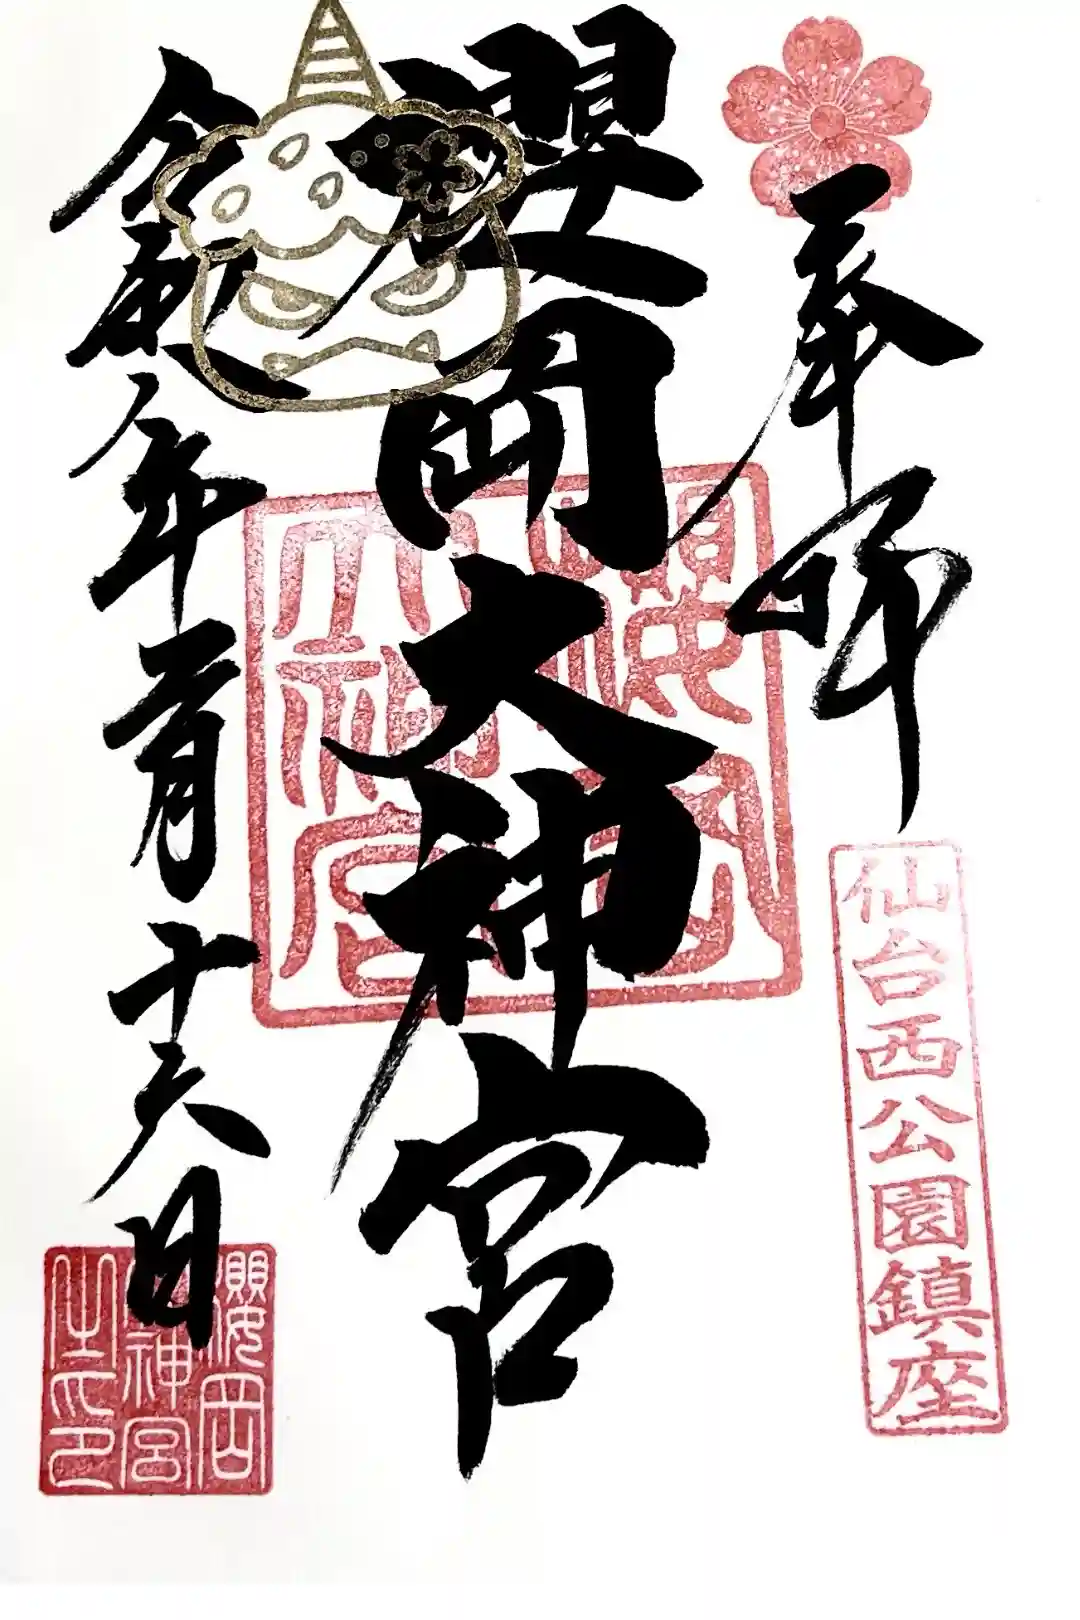 奉拝
仙台西公園鎮座
櫻岡大神宮
櫻岡大神宮
令和年二月十六日
櫻岡大神宮之印